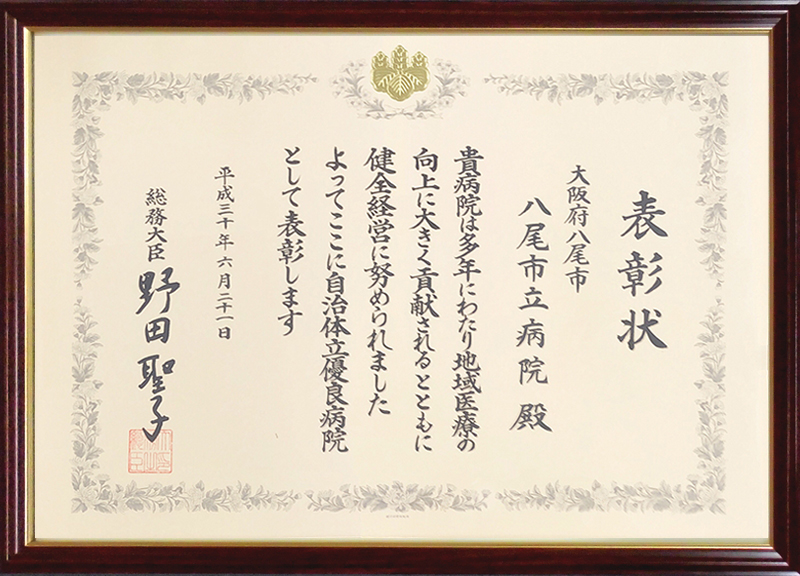 表彰状
大阪府八尾市
八尾市立病院 殿
貴病院は多年にわたり地域医療の
向上に大きく貢献されるとともに
健全経営に努められました
よってここに自治体立優良病院
として表彰します
平成三十年六月二十一日
総務大臣 野田聖子